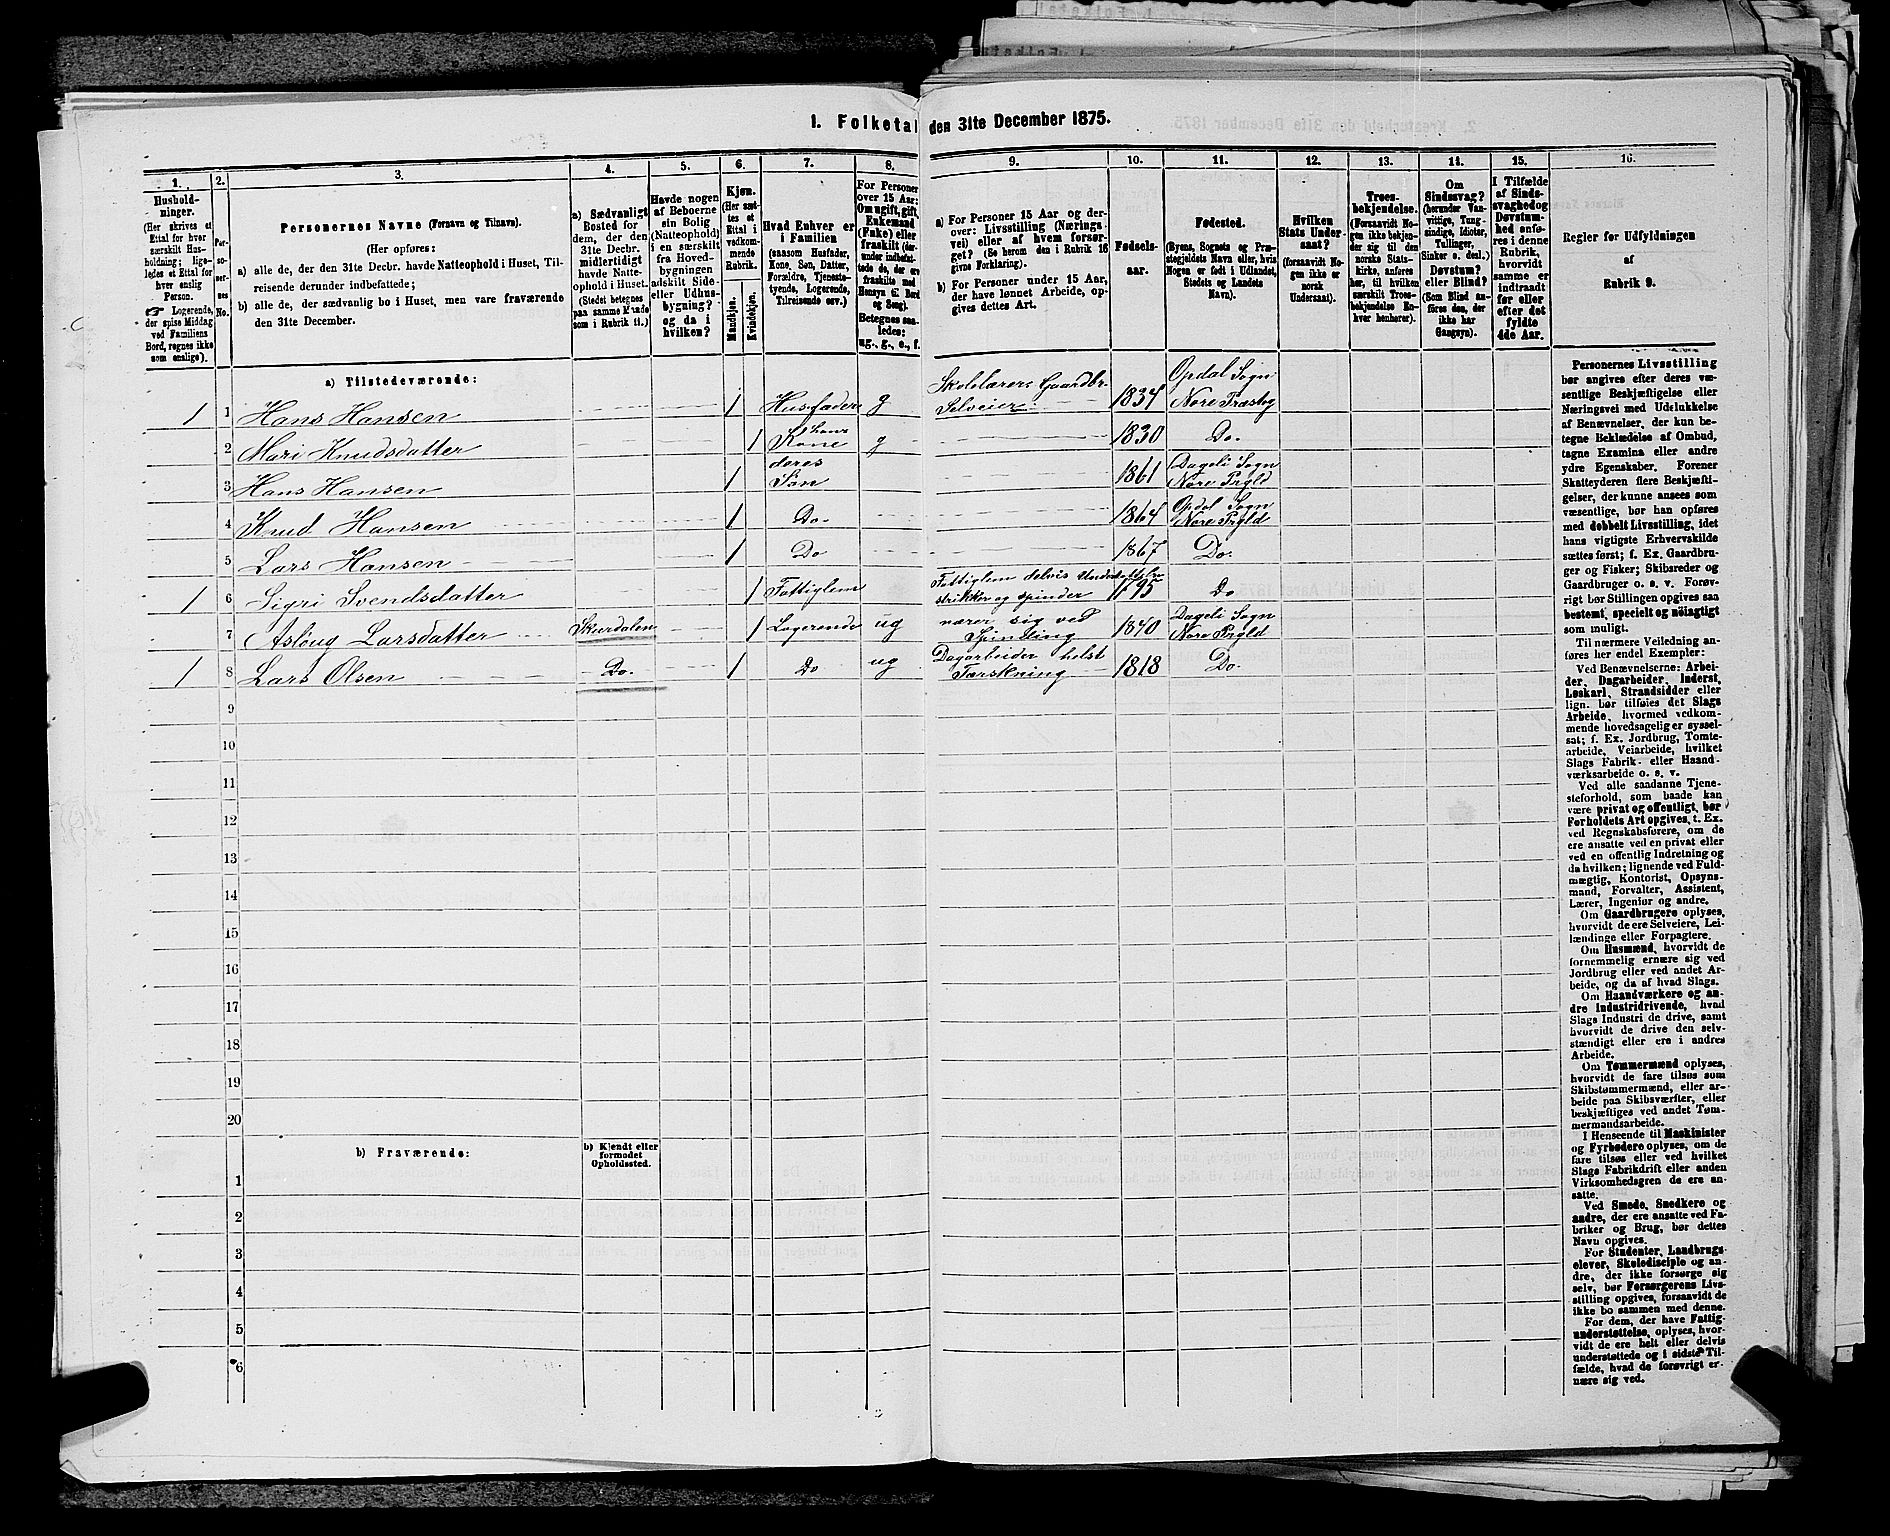 1. Folketal den 31te December 1875.
1. 2. 3. 4. 5. 6. 7. 8. 9. 10. 11. 12. 13. 14. 15. 16.
Hushold-
ninger.
(Her skrives et
Ettal for hver
særskilt Hus-
holdning; lige-
ledes et Ettal for
hver enslig
Person.
☞ Logerende,
der spise Middag
ved Familiens
Bord, regnes ikke
som enslige).
Per-
so-
ner-
nes
No.
Personernes Navne (Fornavn og Tilnavn).
(Her opføres:
a) alle de, der den 31te Decbr. havde Natteophold i Huset, Til-
reisende derunder indbefattede;
b) alle de, der sædvanlig bo i Huset, men vare fraværende
den 31te December.
a) Sædvanligt
Bosted for
dem, der den
31te Decbr.
midlertidigt
havde Natte-
ophold i Huset.
(Stedet betegnes
paa samme Maade
som i Rubrik 11.)
Havde nogen
af Beboerne
sin Bolig
(Natteophold)
i en særskilt
fra Hoved-
bygningen
adskilt Side-
eller Udhus-
bygning?
og da i
hvilken?
Kjøn.
(Her sæt-
tes et
Ettal i
vedkom-
mende
Rubrik.
Mandkjøn.
Kvindekjøn.
Hvad Enhver er
i Familien
(saasom Husfader,
Kone, Søn, Datter,
Forældre, Tjeneste-
tyende, Logerende,
Tilreisende osv.)
For Personer
over 15 Aar:
Om ugift, gift,
Enkemand
(Enke) eller
fraskilt (der-
under indbefat-
tede de, der ere
fraskilte med
Hensyn til Bord
og Seng).
Betegnes saa-
ledes:
ug., g., e., f.
a) For Personer 15 Aar og der-
over: Livsstilling (Nærings-
vei) eller af hvem forsør-
get? (Se herom den i Rubrik 16
givne Forklaring).
b) For Personer under 15 Aar,
der have lønnet Arbeide, op-
gives dettes Art.
Fødsels-
aar.
Fødested.
(Byens, Sognets og Præ-
stegjeldets Navn eller, hvis
Nogen er født i Udlandet,
Stedets og Landets
Navn).
Hvilken
Stats Under-
saat?
(forsaavidt No-
gen ikke er
norsk
Undersaat).
Troes-
bekjendelse.
(Forsaavidt No-
gen ikke bekjen-
der sig til den
norske Stats-
kirke, anføres
her, til hvilken
særskilt Troes-
bekjendelse En-
hver henhører).
Om
Sindssvag?
(herunder Van-
vittige, Tung-
sindige, Idioter,
Tullinger,
Sinker o. desl.)
Døvstum?
eller Blind?
(Som Blind an-
føres den, der
ikke har
Gangsyn).
I Tilfælde
af Sinds-
svaghed og
Døvstum-
hed anfø-
res i denne
Rubrik,
hvorvidt
samme er
indtraadt
før eller
efter det
fyldte
4de Aar.
Regler for Udfyldningen
af
Rubrik 9.
a) Tilstedeværende:
1 1 Hans Hansen 1 Husfader g Skolelærer, Gaardbr. Selveier 1834 Opdal Sogn Nore Præstbg
2 Mari Knudsdatter 1 hans Kone g 1830 Do.
3 Hans Hansen 1 deres Søn 1861 Dageli Sogn Nore Prgld
4 Knud Hansen 1 Do. 1864 Opdal Sogn Nore Prgld
5 Lars Hansen 1 Do 1867 Do.
1 6 Sigri Svendsdatter 1 Fattiglem Fattiglem delvis strikker og spinder 1795 Do
7 Aslaug Larsdatter Skurdalen 1 Logerende ug nærer sig ved Spinding 1840 Dageli Sogn Nore Prgld
1 8 Lars Olsen Do. 1 Do ug Dagarbeider helst Tærskning 1818 Do.
9
10
11
12
13
14
15
16
17
18
19
20
b) Fraværende:
b) Kjendt eller
formodet
Opholdssted.
1
2
3
4
5
6
Personernes Livsstilling
bør angives efter deres væ-
sentlige Beskjæftigelse eller
Næringsvei med Udelukkelse
af Benævnelser, der kun be-
tegne Beklædelse af Ombud,
tagne Examina eller andre
ydre Egenskaber. Forener
Skatteyderen flere Beskjæfti-
gelser, der kunne ansees som
væsentlige, bør han opføres
med dobbelt Livsstilling, idet
hans vigtigste Erhvervskilde
sættes først; f. Ex. Gaardbru-
ger og Fisker; Skibsreder og
Gaardbruger o. s. v. Forøv-
rigt bør Stillingen opgives saa
bestemt, specielt og nøiagtigt
som muligt.
Til nærmere Veiledning an-
føres her endel Exempler:
Ved Benævnelserne: Arbei-
der, Dagarbeider, Inderst,
Løskarl, Strandsidder eller
lign. bør tilføies det Slags
Arbeide, hvormed vedkom-
mende hovedsagelig er syssel-
sat; f. Ex. Jordbrug, Tomte-
arbeide, Veiarbeide, hvilket
Slags Fabrik- eller Haand-
værksarbeide o. s. v.
Ved alle saadanne Tjene-
steforhold, som baade kan
være privat og offentligt, bør
Forholdets Art opgives, t. Ex.
ved Regnskabsførere, om de
ere ansatte ved en privat eller
ved en offentlig Indretning og
da hvilken; lignende ved Fuld-
mægtig, Kontorist, Opsyns-
mand, Forvalter, Assistent,
Lærer, Ingeniør og andre.
Om Gaardbrugere oplyses,
hvorvidt de ere Selveiere, Lei-
lændinge eller Forpagtere.
Om Husmænd, hvorvidt de
fornemmelig ernære sig ved
Jordbrug eller ved andet Ar-
beide, og da af hvad Slags.
Om Haandværkere og an-
dre Industridrivende, hvad
Slags Industri de drive, samt
hvorvidt de drive den selv-
stændigt eller ere i andres
Arbeide.
Om Tømmermænd oplyses,
hvorvidt de fare tilsøs som
Skibstømmermænd, eller ar-
beide paa Skibsværfter, eller
beskjæftiges ved andet Tøm-
mermandsarbeide.
I Henseende til Maskinister
og Fyrbødere oplyses, om de
fare tilsøs eller ved hvilket
Slags Fabrikdrift eller anden
Virksomhedsgren de ere an-
satte.
Ved Smede, Snedkere og
andre, der ere ansatte ved Fa-
briker og Brug, bør dettes
Navn opgives.
For Studenter, Landbrugs-
elever, Skoledisciple og an-
dre, der ikke forsørge sig
selv, bør Forsørgerens Livs-
stilling opgives, forsaavidt de
ikke bo sammen med denne.
For dem, der have Fattig-
understøttelse, oplyses, hvor-
vidt de ere helt eller delvis
understøttede og i sidste Til-
fælde, hvad de forøvrigt er-
nære sig ved.